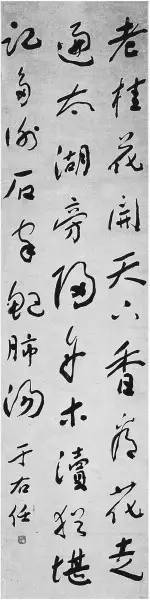 老桂花開天下香看花走
遍太湖旁歸舟木瀆猶堪
記多謝石家鲃肺湯
于右任